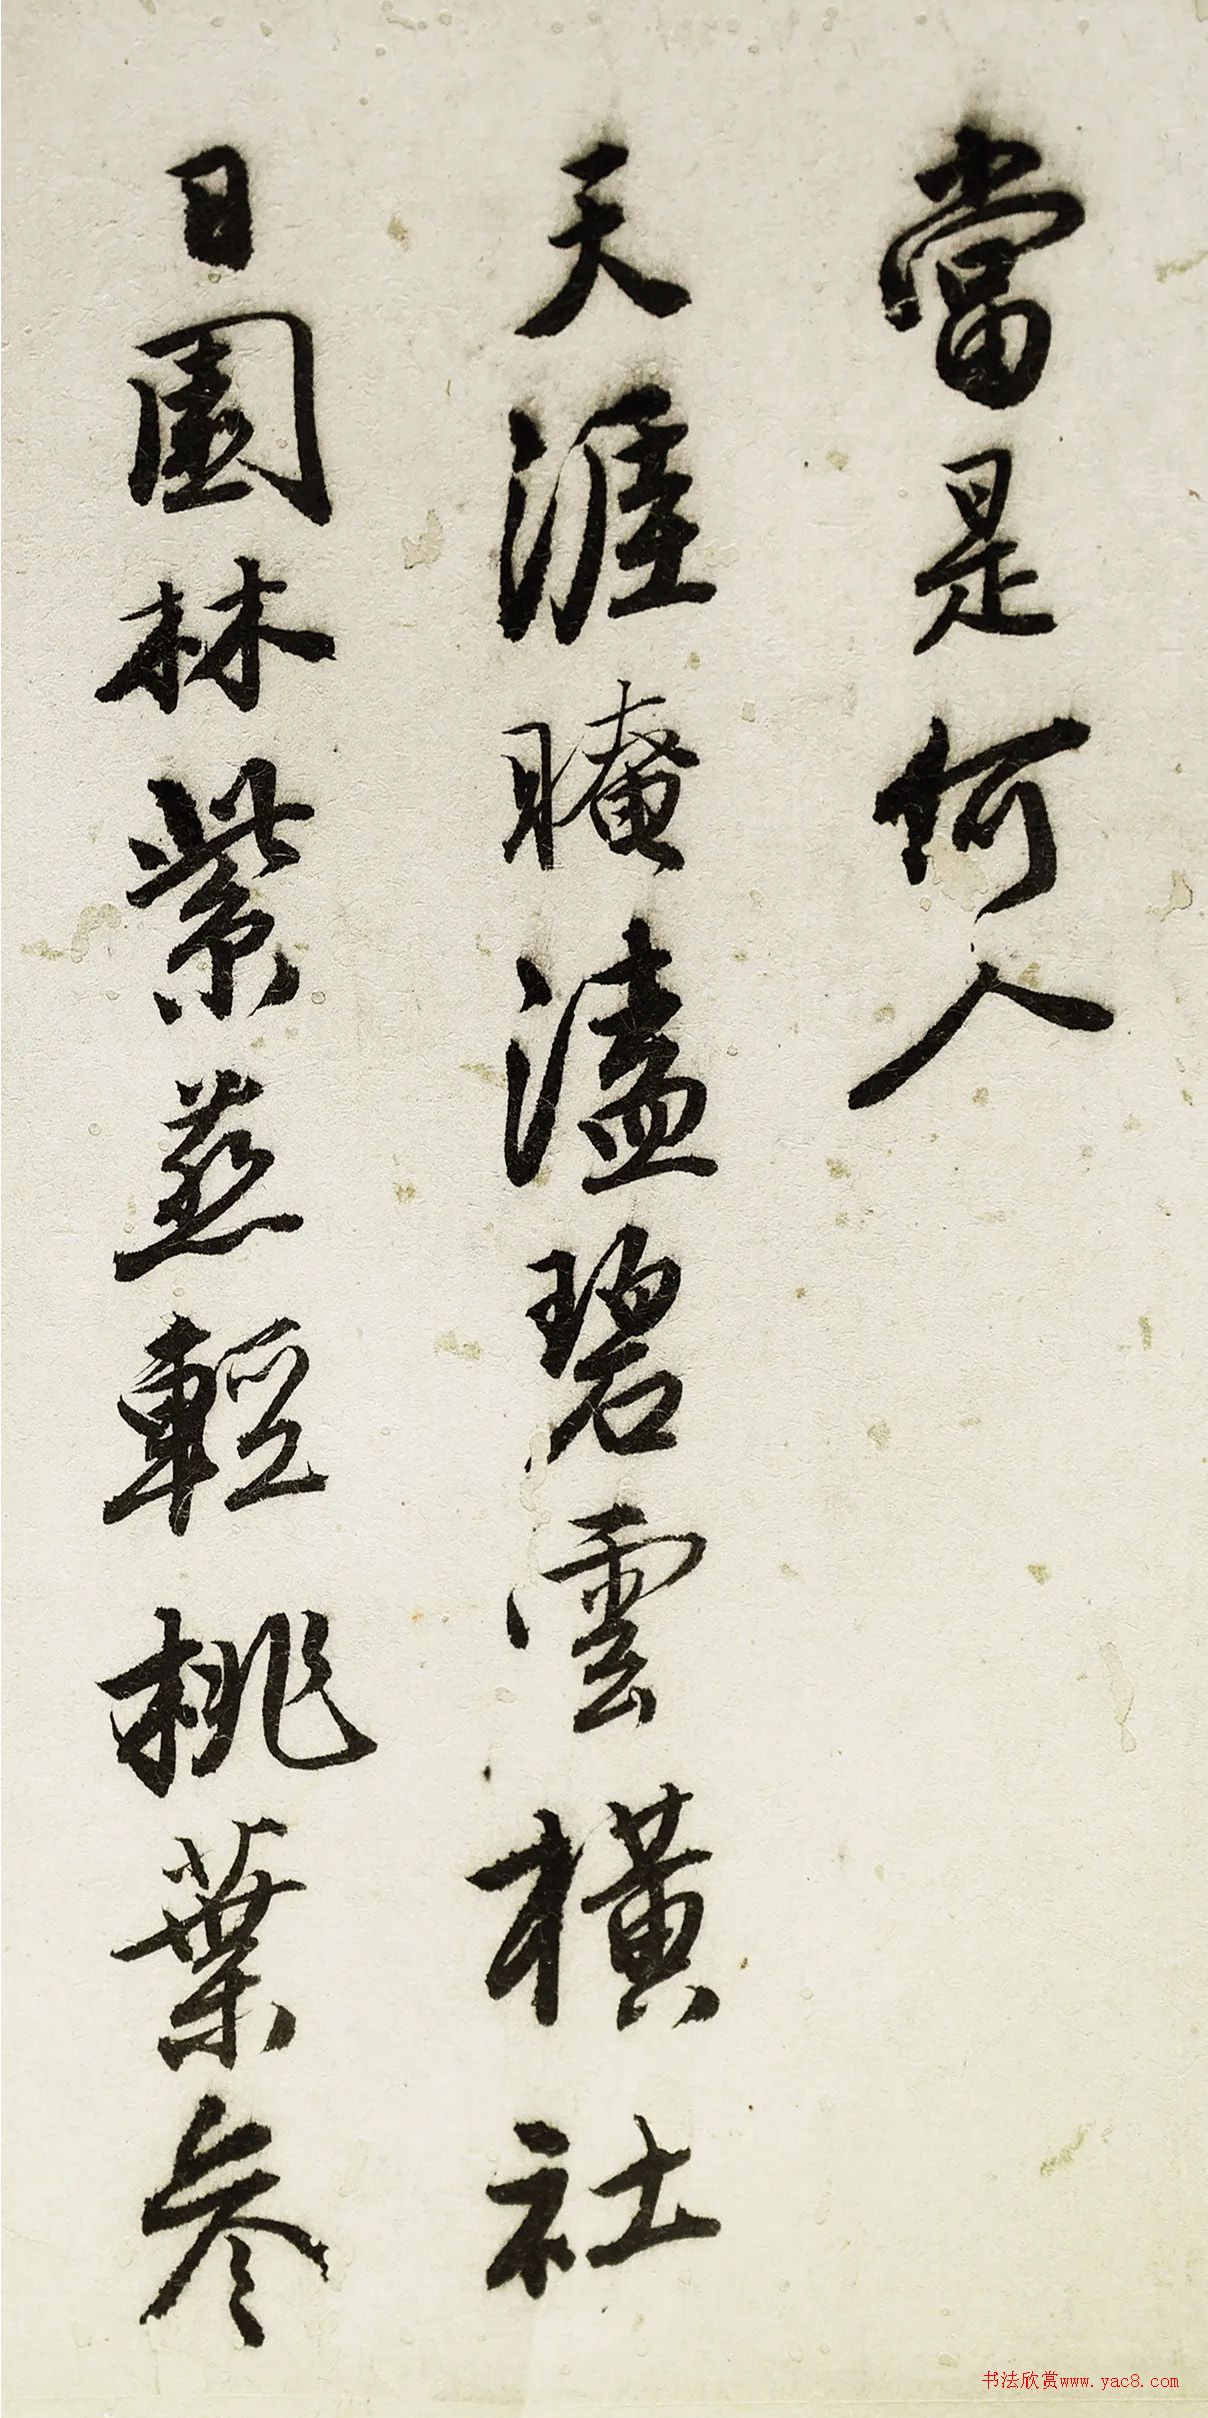 當是何人
天涯晻溘碧雲橫社
日園林紫燕輕桃葉參
书法欣赏www.yac8.com